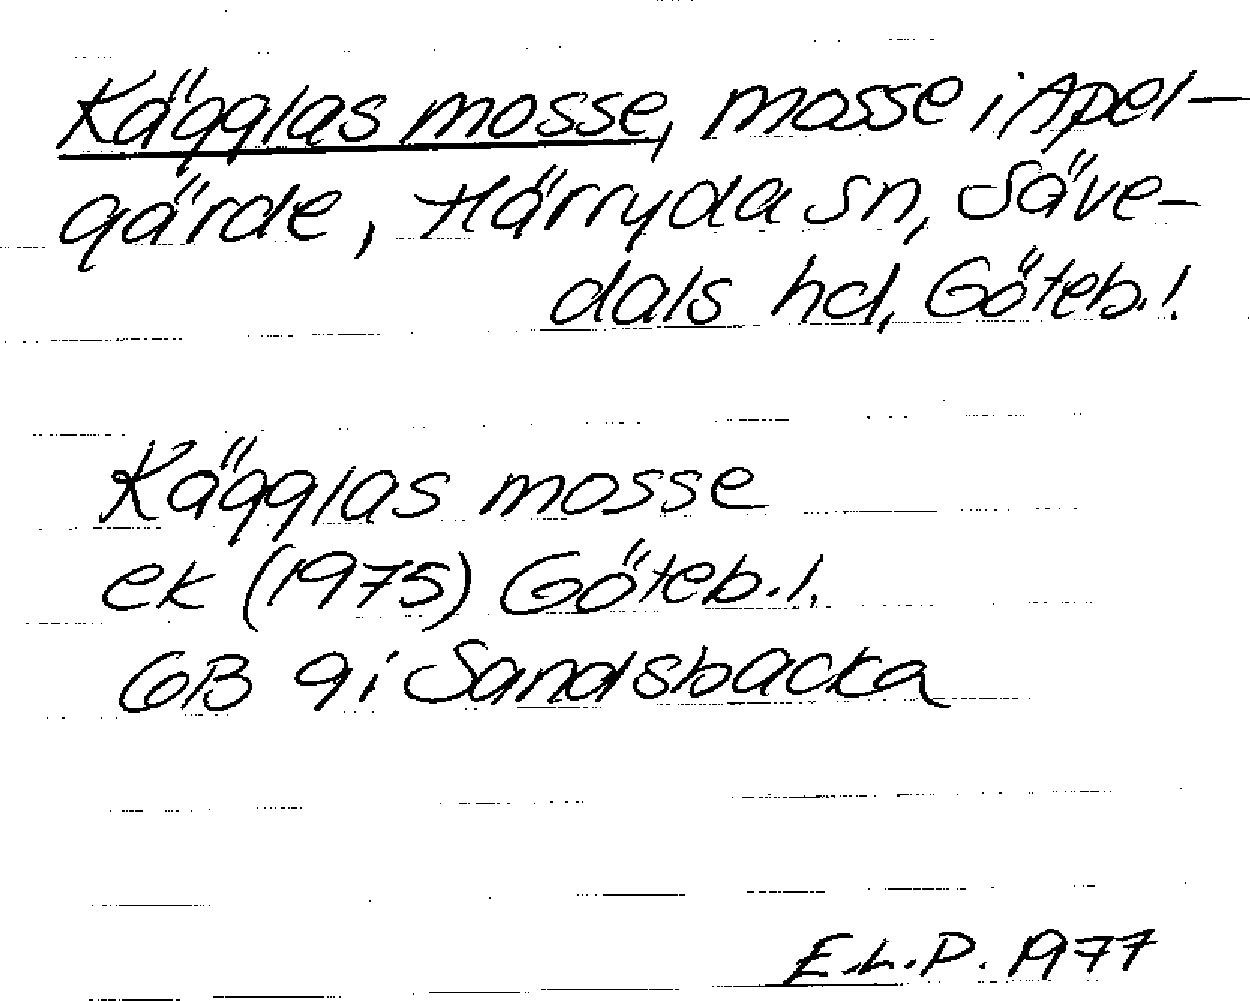 Kägglas mosse, mosse i Apel-
gärde, Härryda sn, Säve-
dals hd, Göteb. l
Kägglas mosse
ek (1975) Göteb. l.
GB 9i Sandsbacka
E.L.P. 1977